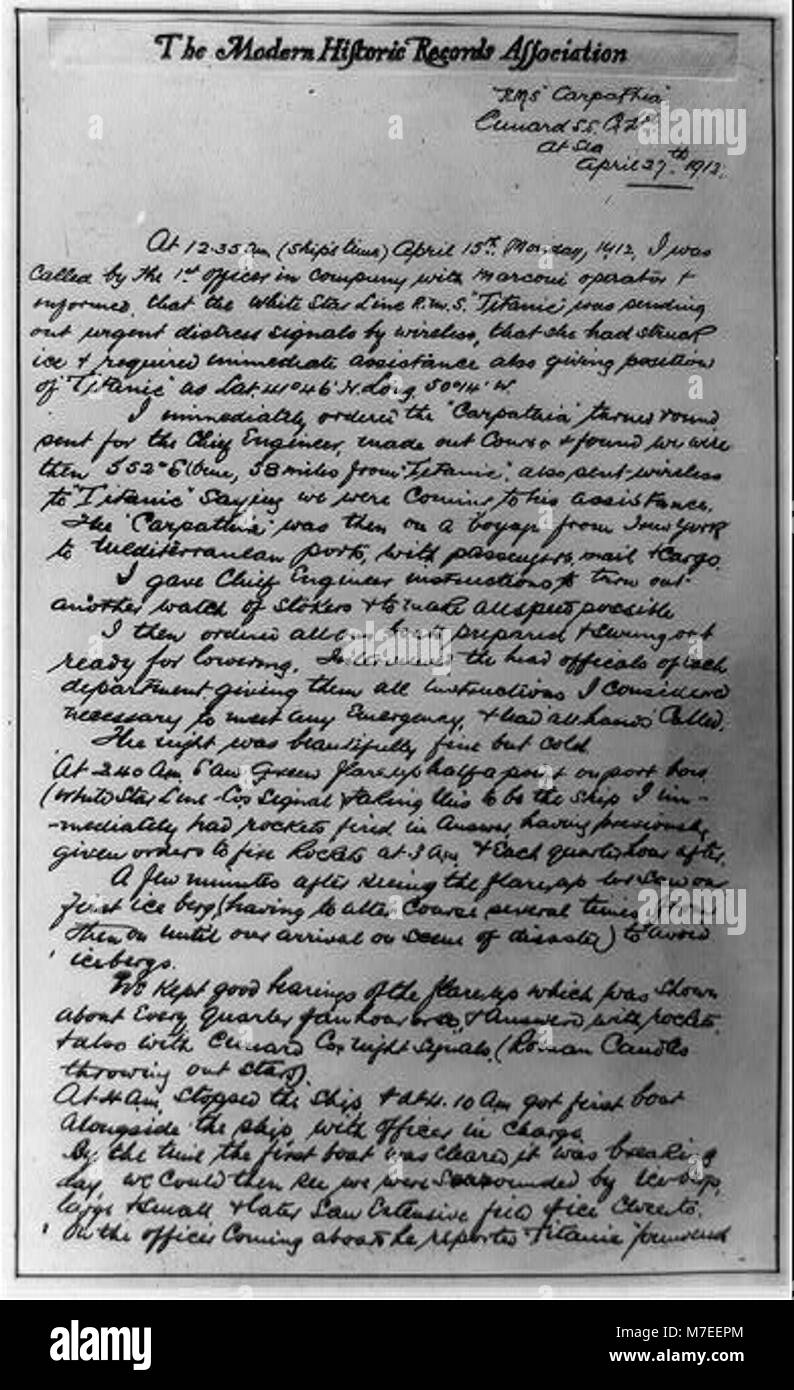 The Modern Historic Records Association
"RMS" Carpathia
Cunard S.S. Co Ld.
At Sea
April 27th 1912.
At 12.35 am (Ship's time) April 15th. Monday, 1912, I was
called by the 1st officer in company with Marconi operator &
informed, that the White Star Line R.M.S. "Titanic" was sending
out urgent distress signals by wireless, that she had struck
ice & required immediate assistance also giving position
of "Titanic" as Lat. 41°46' N. Long. 50°14' W.
I immediately ordered the "Carpathia" turned round
sent for the Chief Engineer, made out Course & found we were
then S 52° E true, 58 miles from "Titanic". also sent wireless
to "Titanic" saying we were coming to his assistance.
The "Carpathia" was then on a voyage from New York
to Mediterranean ports, with passengers, mail & cargo.
I gave Chief Engineer instructions to turn out
another watch of stokers & to make all speed possible
I then ordered all our boats prepared & swung out
ready for lowering. the head officials of each
department giving them all instructions I considered
necessary to meet any Emergency, & had all hands called.
The night was beautifully fine but cold
At 2.40 am Saw Green flareup half a point on port bow
(White Star Line Co's Signal) & taking this to be the ship I im-
-mediately had rockets fired in answer, having previously
given orders to fire Rockets at 3 am & Each quarter hour after.
A few minutes after seeing the flareup we saw our
first ice berg, (having to alter course several times from
then on until our arrival on scene of disaster) to avoid
icebergs.
We kept good bearings of the flareup which was shown
about Every quarter of an hour & answered with rockets
& also with Cunard Co's night signals, (Roman Candles
throwing out stars).
At 4 am, stopped the ship, & at 4.10 am got first boat
alongside the ship with officer in charge
By the time the first boat was cleared it was breaking
day, we could then see we were surrounded by icebergs,
large & small & later saw Extensive field of ice
On the officer coming aboard he reported "Titanic" foundered
alamy
alamy
Image ID: M7EEPM
www.alamy.com